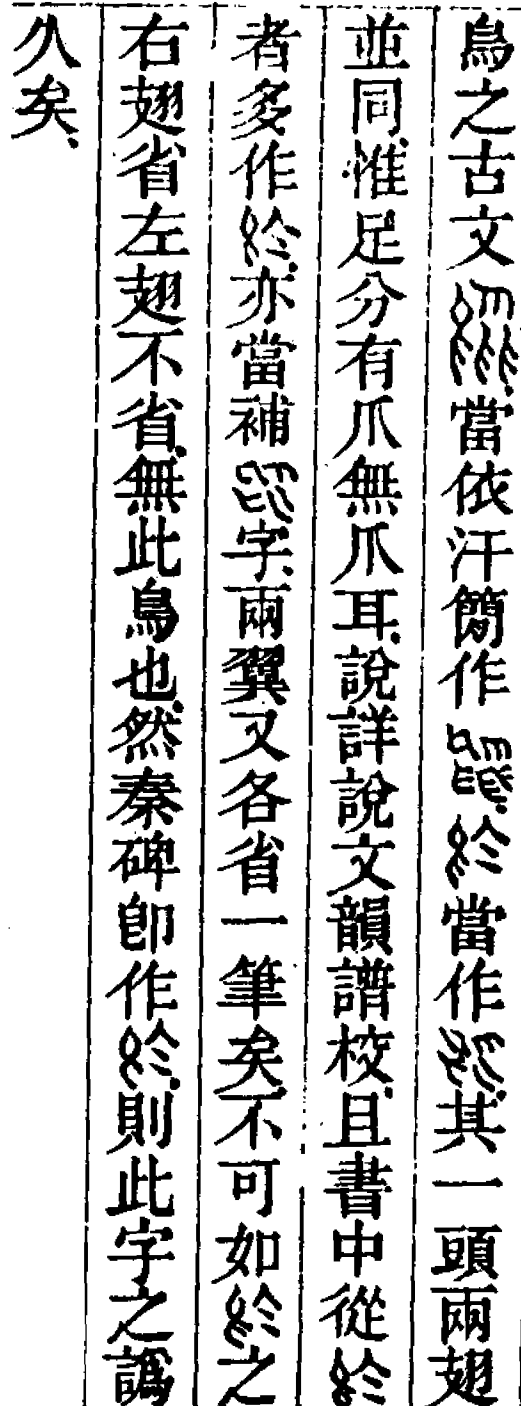 烏之古文、當依汗簡作、於當作、其一頭兩翅
並同、惟足分有爪無爪耳、說詳說文韻譜校、且書中從於
者多作於、亦當補字、兩翼又各省一筆矣、不可如於之
右翅省左翅不省、無此鳥也、然秦碑卽作於、則此字之譌
久矣、